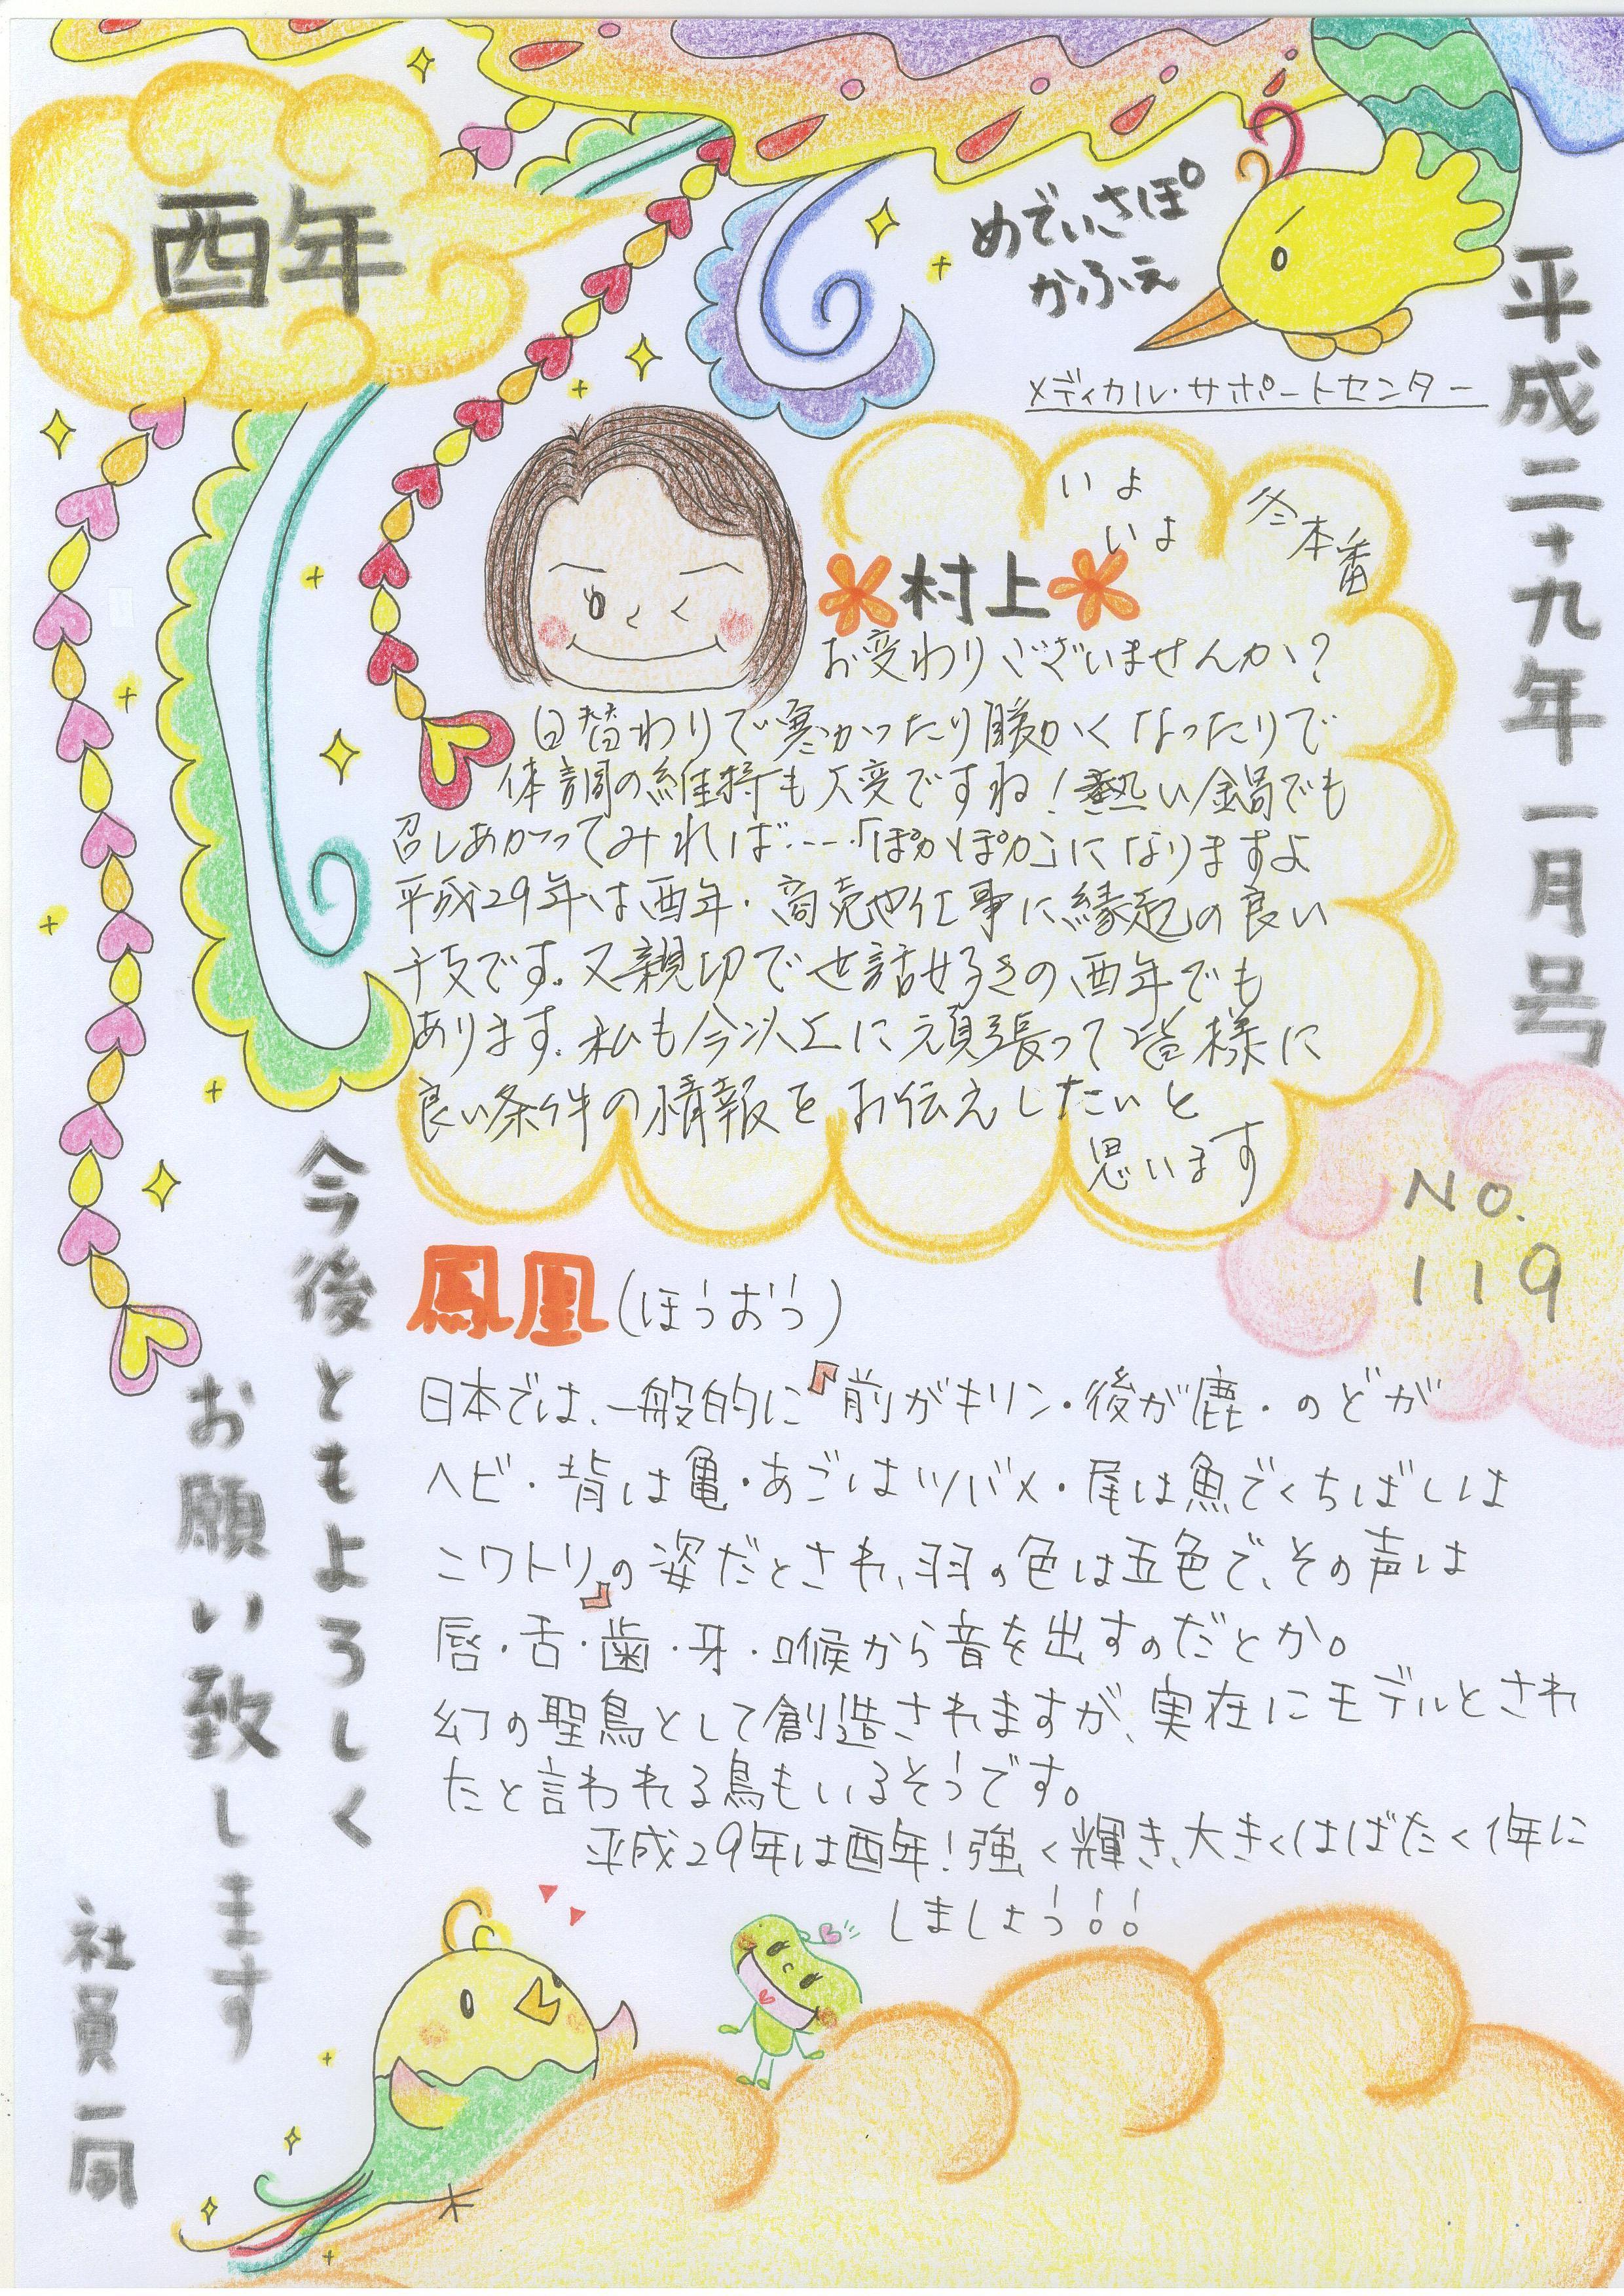 酉年
めでぃさぽ
かふぇ
メディカル・サポートセンター
平成二十九年一月号
いよ
いよ
冬本番
村上
お変わりございませんか?
日替わりで寒かったり暖かくなったりで
体調の維持も大変ですね!熱い鍋でも
召しあがってみれば・・・・「ぽかぽか」になりますよ
平成29年は酉年・商売や仕事に縁起の良い
干支です。又親切で世話好きの酉年でも
あります。私も今以上に頑張って皆様に
良い条件の情報をお伝えしたいと
思います
No.
119
鳳凰(ほうおう)
日本では、一般的に『前がキリン・後が鹿・のどが
ヘビ・背は亀・あごはツバメ・尾は魚でくちばしは
ニワトリ』の姿だとされ、羽の色は五色で、その声は
唇・舌・歯・牙・喉から音を出すのだとか。
幻の聖鳥として創造されますが、実在にモデルとされ
たと言われる鳥もいるそうです。
平成29年は酉年!強く輝き、大きくはばたく1年に
しましょう!!
今後ともよろしく
お願い致します
社員一同